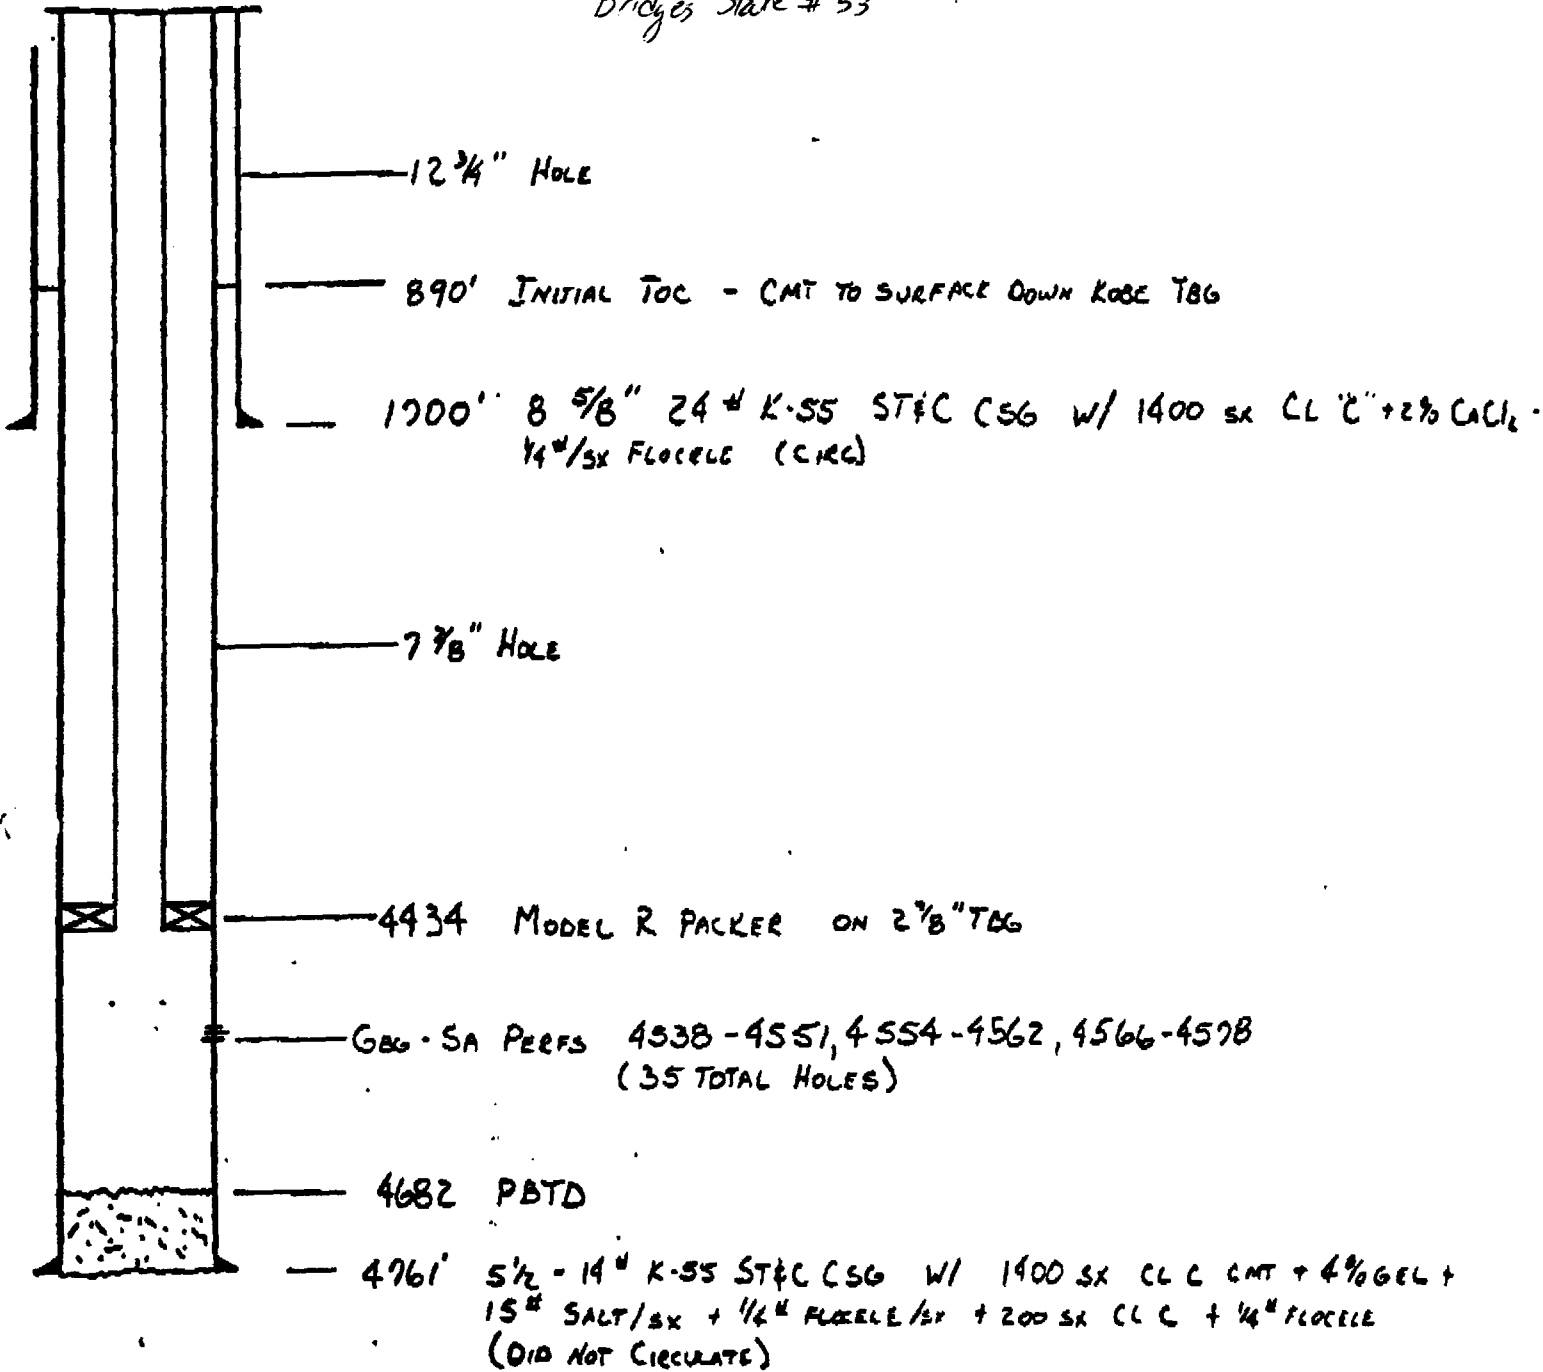 Bridges State # 53
12 3/4" HOLE
890' INITIAL TOC - CMT TO SURFACE DOWN KOBE TBG
1700' 8 5/8" 24 # K-55 ST&C CSG W/ 1400 SX CL "C" + 2% CaCl2 -
1/4 #/SX FLOCELE (CIRC)
7 7/8" HOLE
4434 MODEL R PACKER ON 2 3/8" TBG
GBG-SA PERFS 4538-4551, 4554-4562, 4566-4578
(35 TOTAL HOLES)
4682 PBTD
4761' 5 1/2 - 14 # K-55 ST&C CSG W/ 1400 SX CL C CMT + 4% GEL +
15 # SALT/SX + 1/4 # FLOCELE/SX + 200 SX CL C + 1/4 # FLOCELE
(DID NOT CIRCULATE)